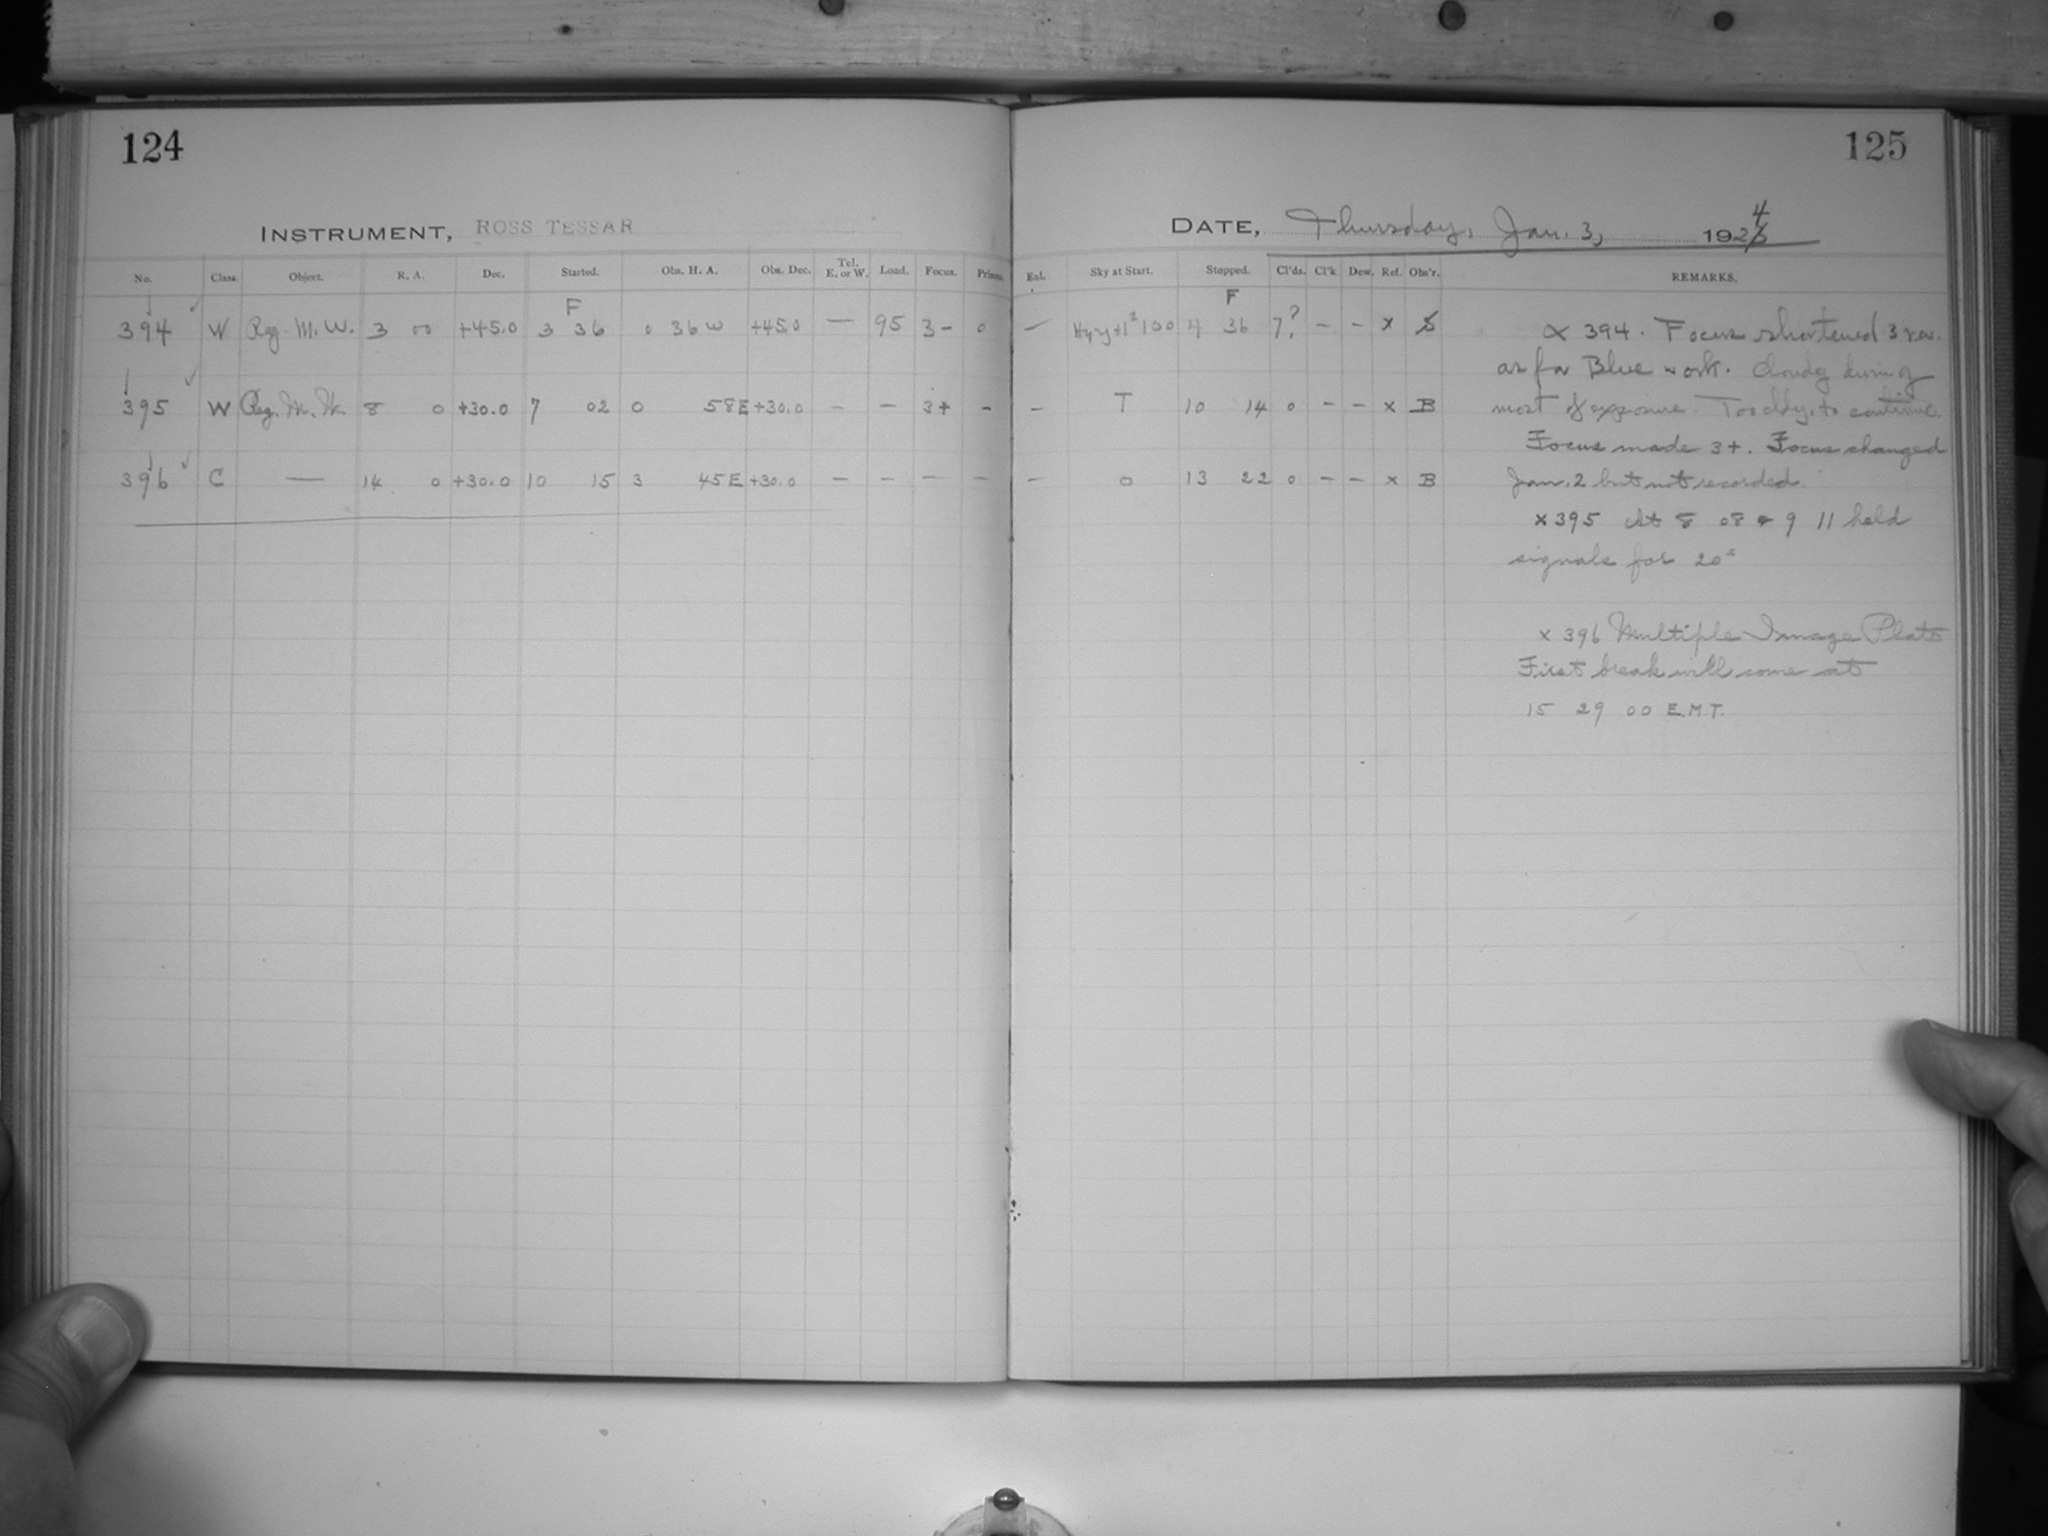 124
125
INSTRUMENT, ROSS TESSAR
DATE, Thursday, Jan. 3, 1924
No. Class. Object. R. A. Dec. Started. Obs. H. A. Obs. Dec. Tel. E. or W. Load. Focus. Prism. Eol. Sky at Start. Stopped. Cl'ds. Cl'k Dew. Ref. Obs'r. REMARKS.
F F
394 W Reg. M. W. 3 00 +45.0 3 36 0 36 W +45.0 — 95 3- 0 — 100 4 36 7? - - x S
395 W Reg. M. W. 8 0 +30.0 7 02 0 58E +30.0 - - 3+ - - T 10 14 0 - - x B
396 C — 14 0 +30.0 10 15 3 45E +30.0 - - - - - 0 13 22 0 - - x B
x 394. Focus shortened 3 rev.
as for Blue work. Cloudy during
most of exposure. Too cldy. to continue.
Focus made 3+. Focus changed
Jan. 2 but not recorded.
x 395 At 8 08 & 9 11 held
signals for 20s
x 396 Multiple Image Plate
First break will come at
15 29 00 E.M.T.